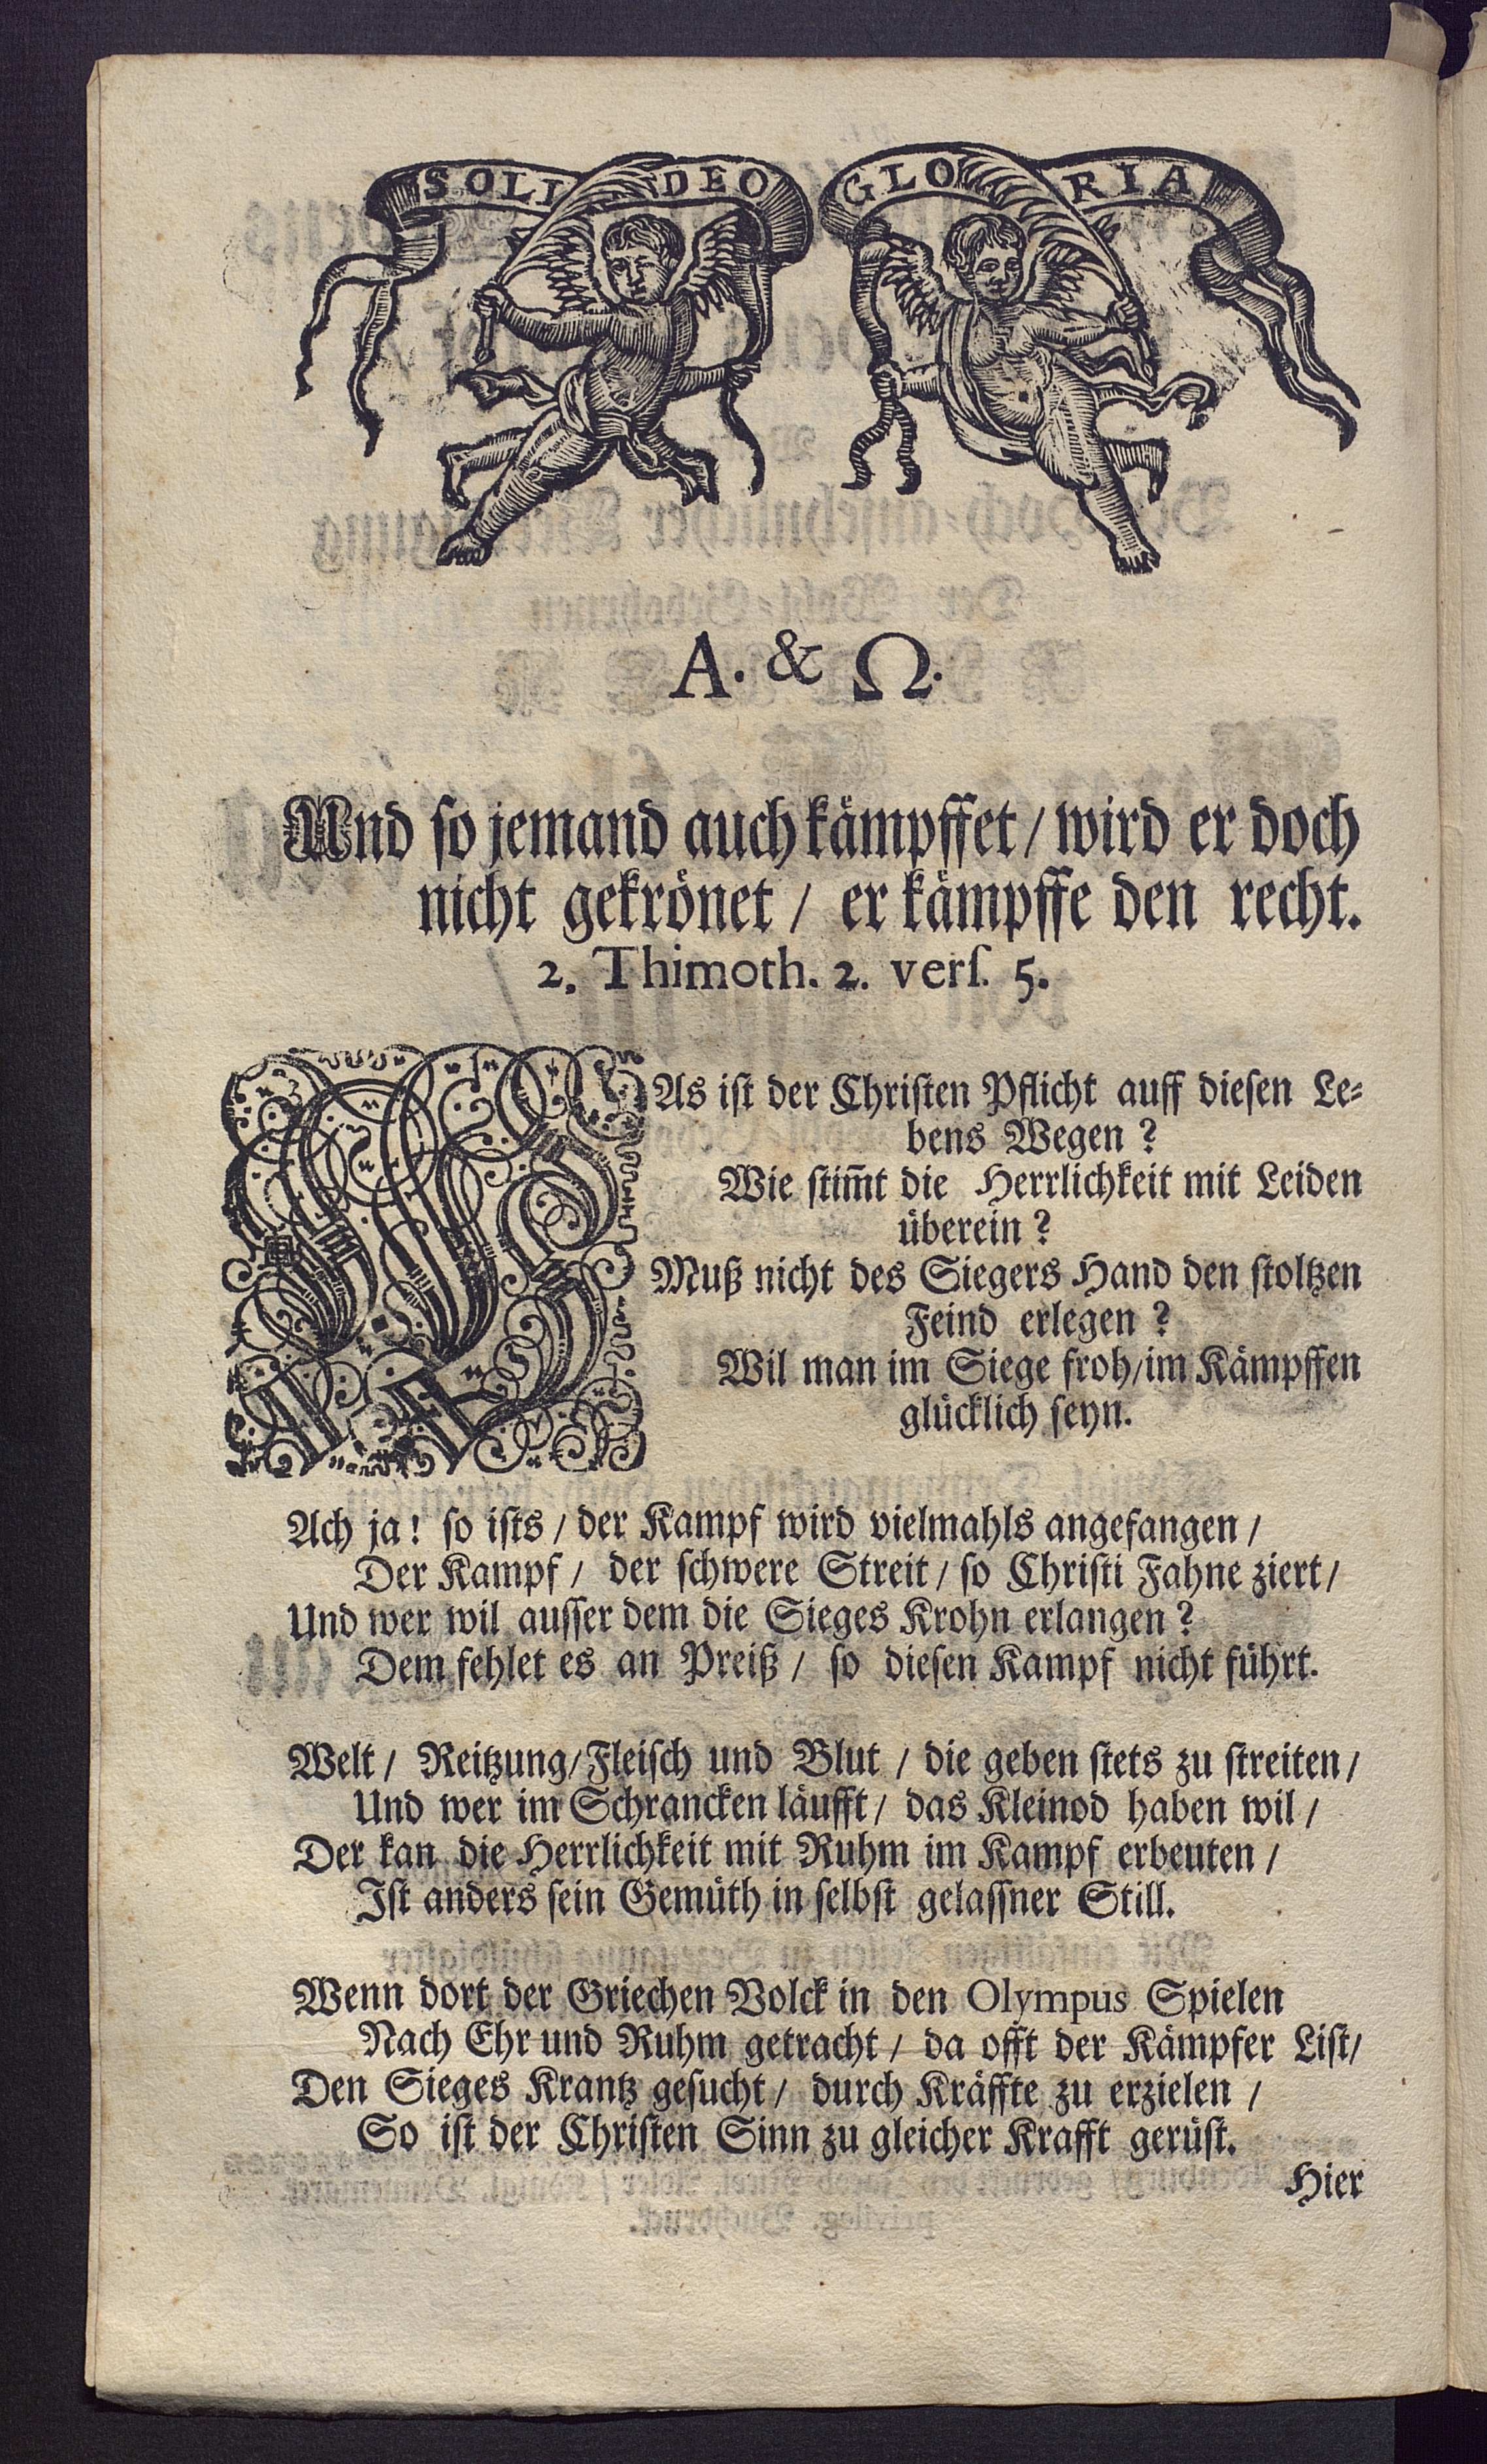 SOLI DEO GLORIA
A. & Ω.
Und ſo jemand auch kämpffet / wird er doch
nicht gekrönet / er kämpffe den recht.
2. Thimoth. 2. verſ. 5.
WAs iſt der Chriſten Pflicht auff dieſen Le-
bens Wegen ?
Wie ſtim̄t die Herrlichkeit mit Leiden
überein ?
Muß nicht des Siegers Hand den ſtoltzen
Feind erlegen ?
Wil man im Siege froh/im Kämpffen
glücklich ſeyn.
Ach ja! ſo iſts / der Kampf wird vielmahls angefangen /
Der Kampf / der ſchwere Streit / ſo Chriſti Fahne ziert /
Und wer wil auſſer dem die Sieges Krohn erlangen ?
Dem fehlet es an Preiß / ſo dieſen Kampf nicht führt.
Welt / Reitzung/Fleiſch und Blut / die geben ſtets zu ſtreiten /
Und wer im Schrancken läufft / das Kleinod haben wil /
Der kan die Herrlichkeit mit Ruhm im Kampf erbeuten /
Iſt anders ſein Gemüth in ſelbſt gelaſſner Still.
Wenn dort der Griechen Volck in den Olympus Spielen
Nach Ehr und Ruhm getracht / da offt der Kämpfer Liſt/
Den Sieges Krantz geſucht / durch Kräffte zu erzielen /
So iſt der Chriſten Sinn zu gleicher Krafft gerüſt.
Hier